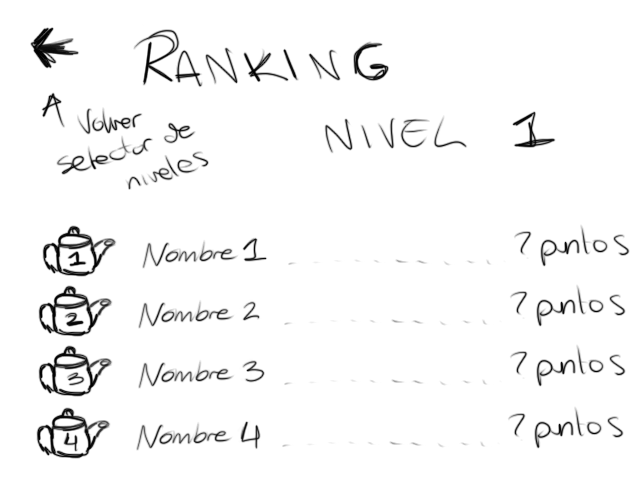 RANKING
Volver
selector de
niveles
NIVEL 1
1 Nombre 1 ? puntos
2 Nombre 2 ? puntos
3 Nombre 3 ? puntos
4 Nombre 4 ? puntos